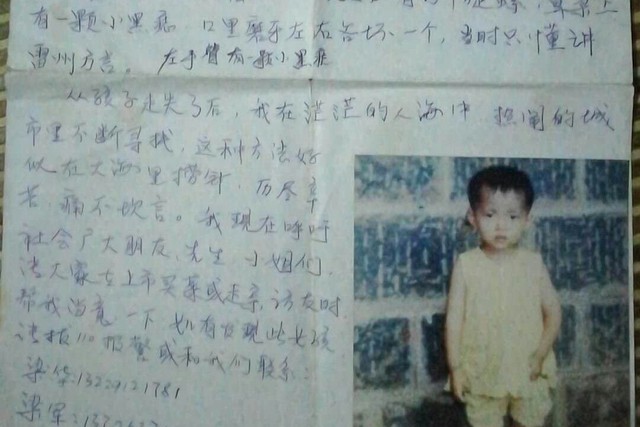 有一颗小黑痣 口里磨牙左右各坏一个，当时只懂讲
雷州方言。左手臂有一颗小黑痣
从孩子走失了后，我在茫茫的人海中 热闹的城
市里不断寻找，这种方法好
似在大海里捞针，历尽辛
苦，痛不欲言。我现在呼吁
社会广大朋友、先生 小姐们，
请大家在上市买菜或走亲、访友时，
帮我留意一下 如有发现此女孩
请拨110报警或和我们联系：
梁华：13229121781
梁军：